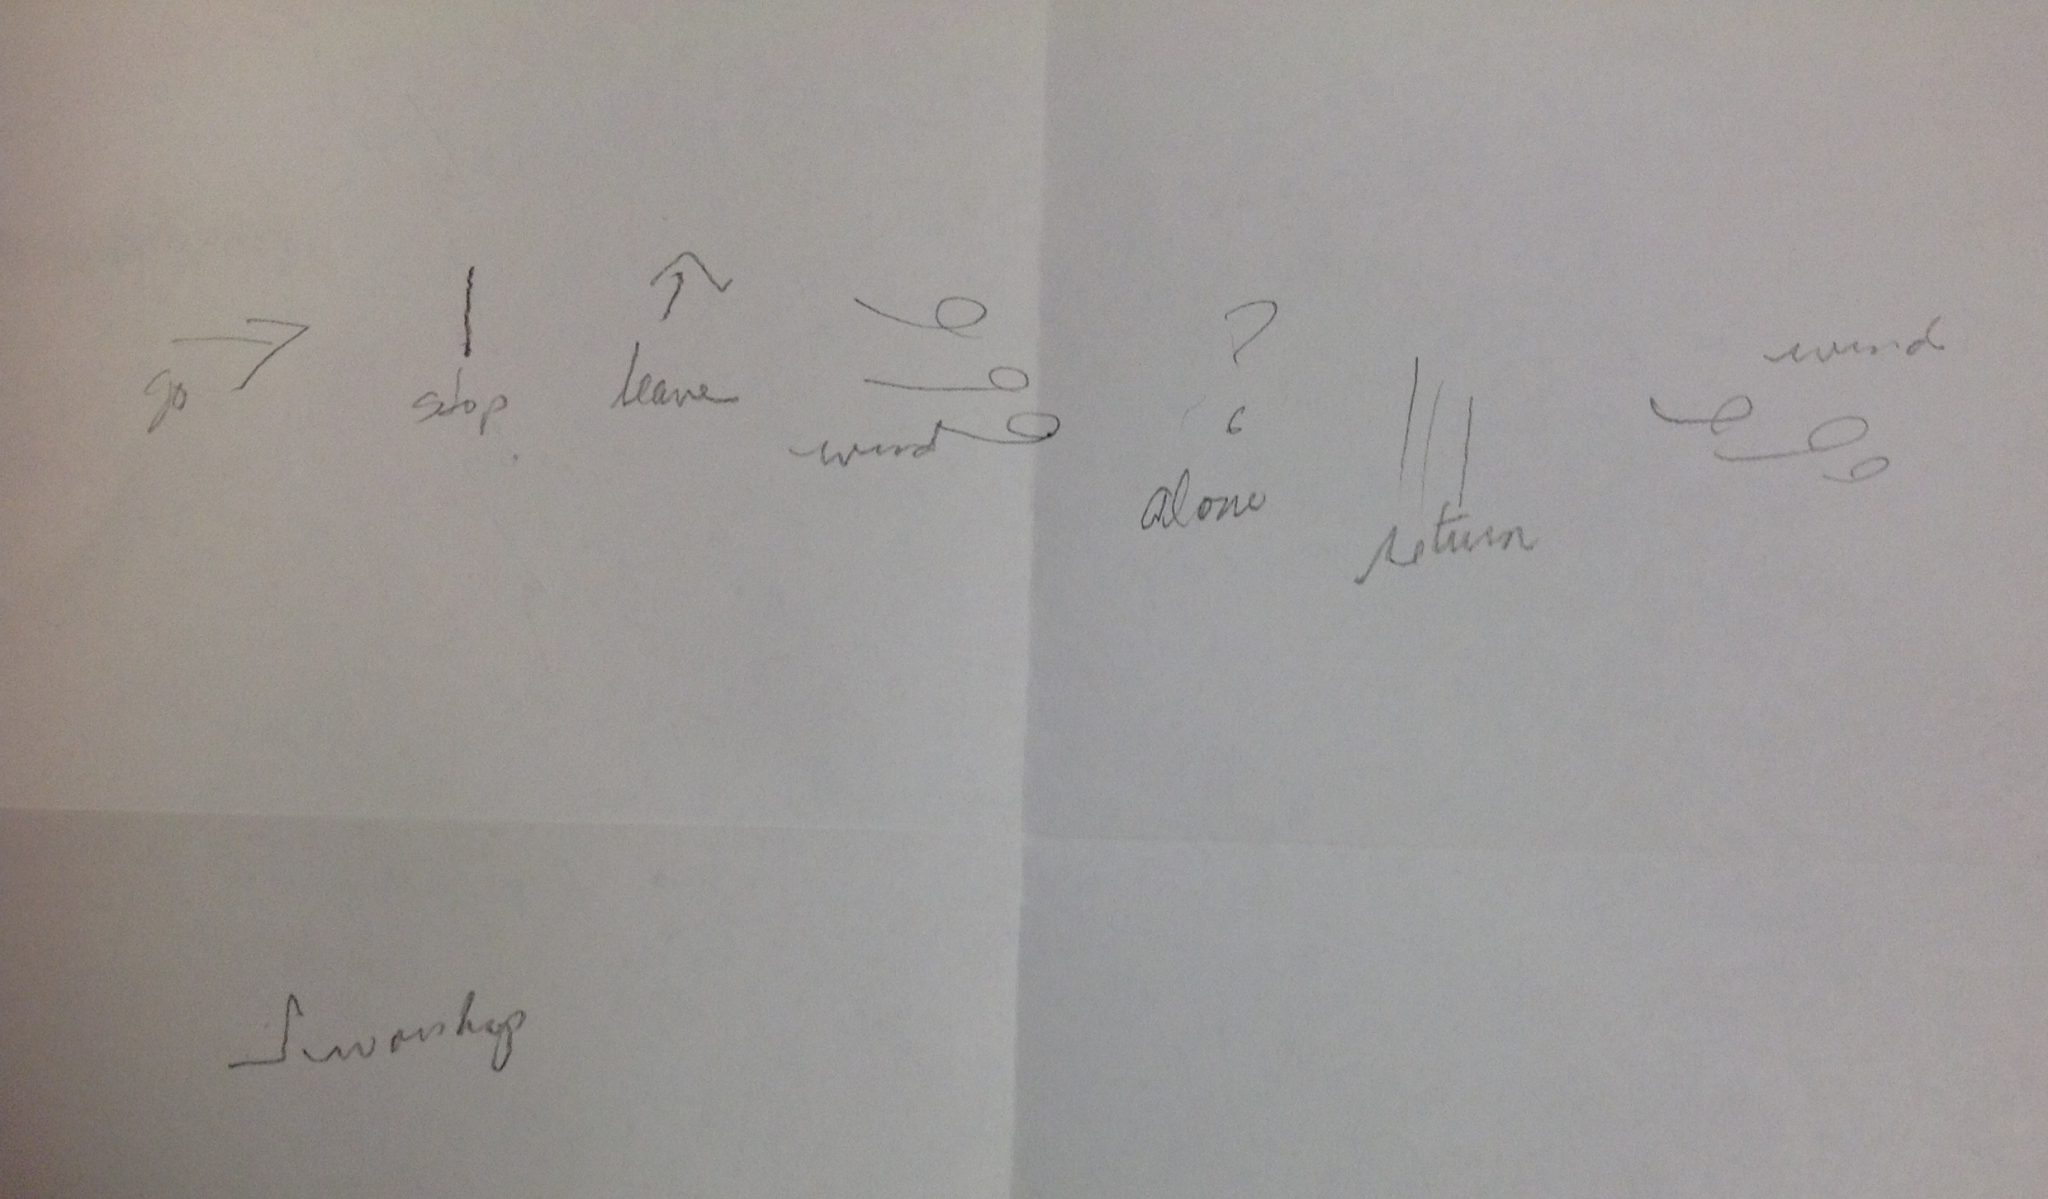 go stop leave wind ? alone return wind
worship